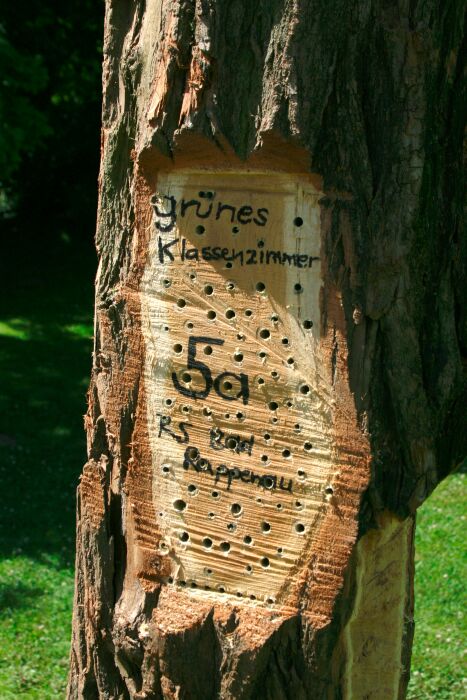 grünes
Klassenzimmer
5a
RS Bad
Rappenau